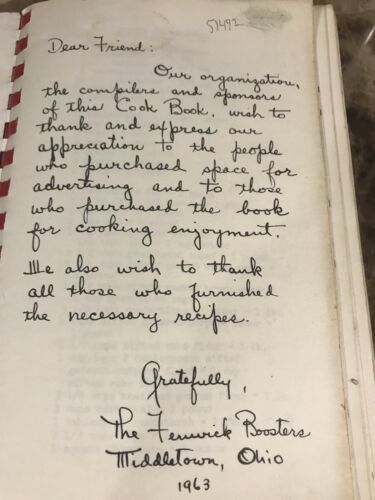 51492
Dear Friend:
Our organization,
the compilers and sponsors
of this Cook Book, wish to
thank and express our
appreciation to the people
who purchased space for
advertising and to those
who purchased the book
for cooking enjoyment.
We also wish to thank
all those who furnished
the necessary recipes.
Gratefully,
The Fenwick Boosters
Middletown, Ohio
1963